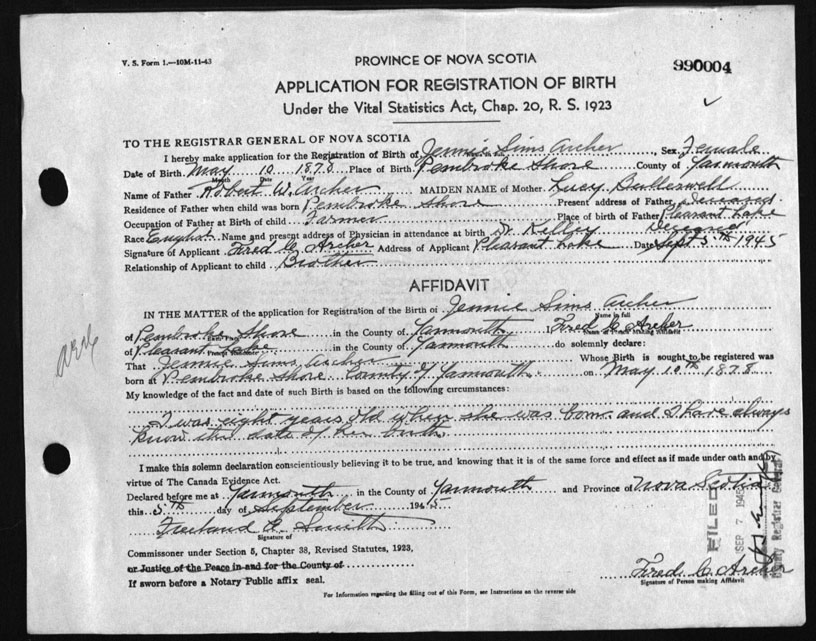 V. S. Form 1.—10M-11-43
PROVINCE OF NOVA SCOTIA
990004
APPLICATION FOR REGISTRATION OF BIRTH
Under the Vital Statistics Act, Chap. 20, R. S. 1923
TO THE REGISTRAR GENERAL OF NOVA SCOTIA
I hereby make application for the Registration of Birth of Jennie Sims Archer, Sex Female
Date of Birth May 10 1878 Place of Birth Pembroke Shore County of Yarmouth
Month Date Year
Name of Father Robert W. Archer MAIDEN NAME of Mother Lucy
Residence of Father when child was born Pembroke Shore Present address of Father deceased
Occupation of Father at Birth of child Farmer Place of birth of Father Pleasant Lake
Race English Name and present address of Physician in attendance at birth Dr Kelley Deceased
Signature of Applicant Fred C Archer Address of Applicant Pleasant Lake Date Sept 5th 1945
Relationship of Applicant to child Brother
AFFIDAVIT
IN THE MATTER of the application for Registration of the Birth of Jennie Sims Archer
Name in full
of Pembroke Shore in the County of Yarmouth Fred C Archer
of Pleasant Lake in the County of Yarmouth do solemnly declare:
That Jennie Sims Archer Whose Birth is sought to be registered was
born at Pembroke Shore County of Yarmouth on May 10th 1878
My knowledge of the fact and date of such Birth is based on the following circumstances:
I was eight years old when she was born and I have always
know the date of her birth.
I make this solemn declaration conscientiously believing it to be true, and knowing that it is of the same force and effect as if made under oath and by
virtue of The Canada Evidence Act.
Declared before me at Yarmouth in the County of Yarmouth and Province of Nova Scotia
this 5th day of September 1945
Freeland E. Smith
Signature of
Commissioner under Section 5, Chapter 38, Revised Statutes, 1923,
or Justice of the Peace in and for the County of
If sworn before a Notary Public affix seal.
Fred C Archer
Signature of Person making Affidavit
For Information regarding the filling out of this Form, see Instructions on the reverse side
FILED
SEP 7 1945
Deputy Registrar General